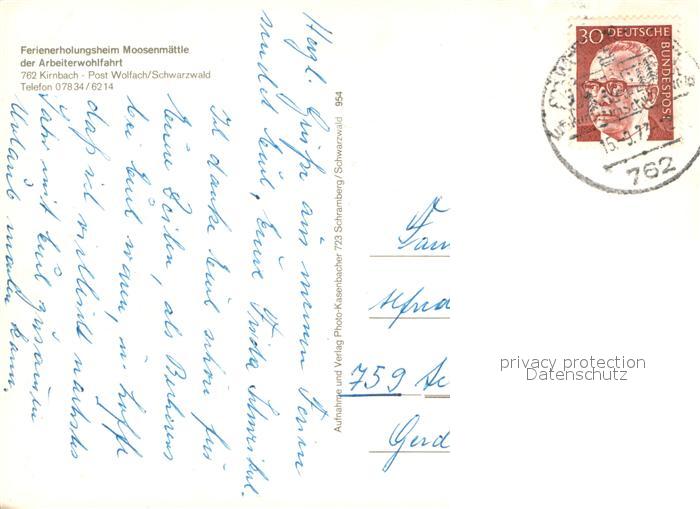 Ferienerholungsheim Moosenmättle
der Arbeiterwohlfahrt
762 Kirnbach - Post Wolfach/Schwarzwald
Telefon 07834/6214
Herzl. Grüße aus meinen Ferien
sendet Euch, Eure Frida
Ich danke Euch schön für
Eure Zeilen, als
bei Euch waren, u. hoffe
daß ich vielleicht nächstes
Jahr mit Euch zusammen
Urlaub machen kann.
Aufnahme und Verlag Photo-Kasenbacher 723 Schramberg/Schwarzwald 954
30 DEUTSCHE
BUNDESPOST
762
Fam
Alfred
759
Gerd
privacy protection
Datenschutz